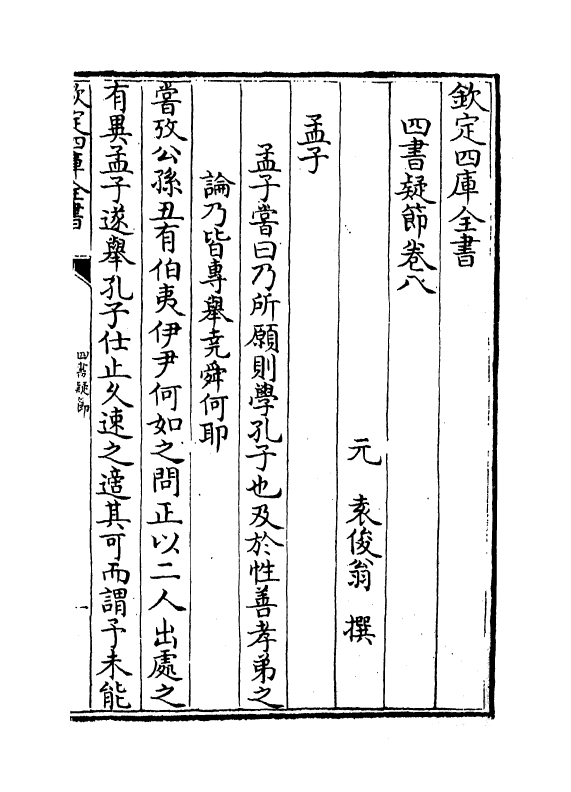 欽定四庫全書
四書疑節卷八
元 袁俊翁 撰
孟子
孟子嘗曰乃所願則學孔子也及於性善孝弟之
論乃皆專舉堯舜何耶
嘗攷公孫丑有伯夷伊尹何如之問正以二人出處之
有異孟子遂舉孔子仕止久速之適其可而謂予未能
欽定四庫全書
四書疑節
一